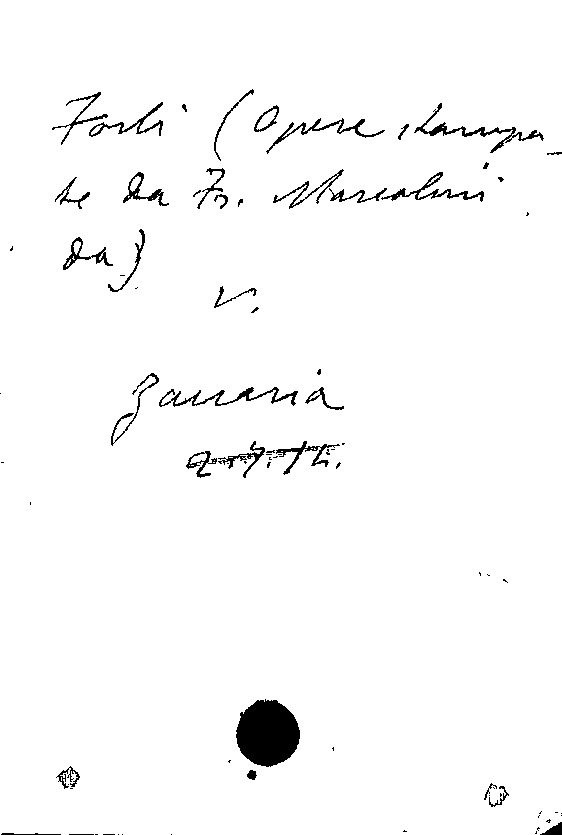 Forlì (Opere stampa-
te da Fr. Marcolini
da)
V.
Zaccaria
2.7.14.